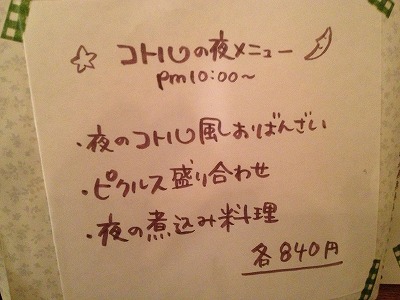 コトリの夜メニュー
pm10:00〜
・夜のコトリ風おばんざい
・ピクルス盛り合わせ
・夜の煮込み料理
各840円